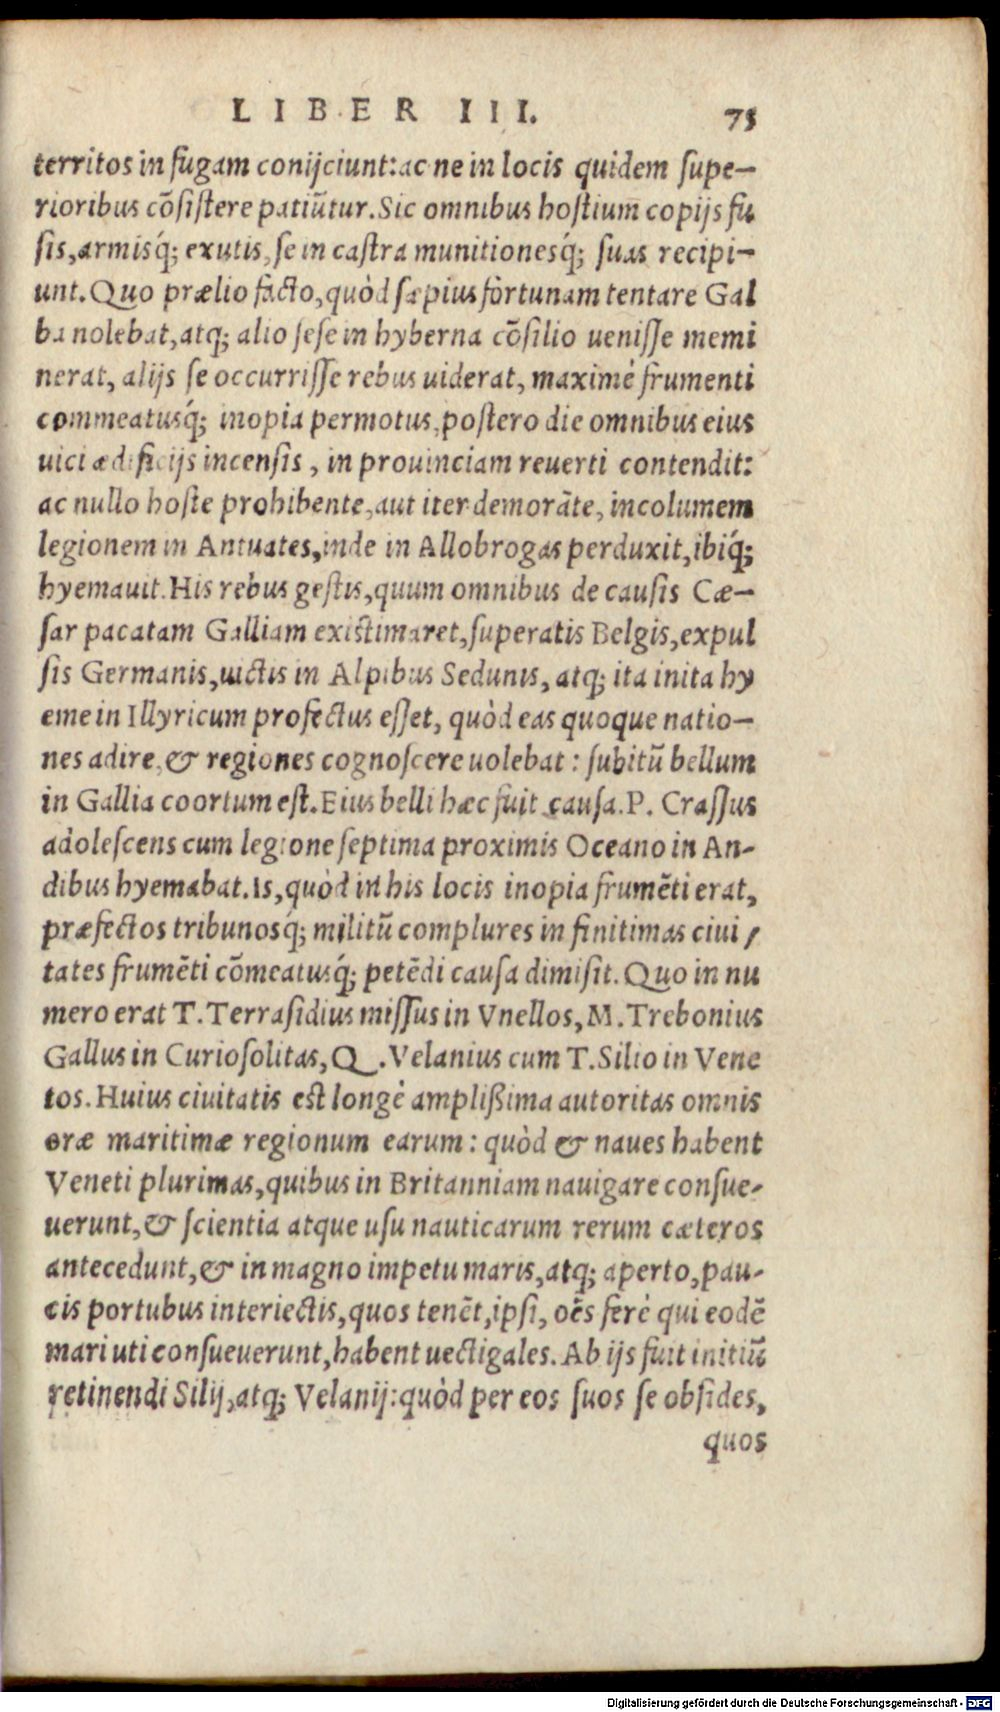 LIBER III. 75
territos in fugam conijciunt: ac ne in locis quidem supe-
rioribus cōsistere patiūtur. Sic omnibus hostium copijs fu
sis, armisq́; exutis, se in castra munitionesq́; suas recipi-
unt. Quo prælio facto, quòd sæpius fortunam tentare Gal
ba nolebat, atq; alio sese in hyberna cōsilio uenisse memi
nerat, alijs se occurrisse rebus uiderat, maximè frumenti
commeatusq́; inopia permotus, postero die omnibus eius
uici ædificijs incensis, in prouinciam reuerti contendit:
ac nullo hoste prohibente, aut iter demorāte, incolumem
legionem in Antuates, inde in Allobrogas perduxit, ibiq́;
hyemauit. His rebus gestis, quum omnibus de causis Cæ-
sar pacatam Galliam existimaret, superatis Belgis, expul
sis Germanis, uictis in Alpibus Sedunis, atq; ita inita hy
eme in Illyricum profectus esset, quòd eas quoque natio-
nes adire, & regiones cognoscere uolebat: subitū bellum
in Gallia coortum est. Eius belli hæc fuit causa. P. Crassus
adolescens cum legione septima proximis Oceano in An-
dibus hyemabat. Is, quòd in his locis inopia frumēti erat,
præfectos tribunosq́; militū complures in finitimas ciui-
tates frumēti cōmeatusq́; petēdi causa dimisit. Quo in nu
mero erat T. Terrasidius missus in Vnellos, M. Trebonius
Gallus in Curiosolitas, Q. Velanius cum T. Silio in Vene
tos. Huius ciuitatis est longè amplißima autoritas omnis
oræ maritimæ regionum earum: quòd & naues habent
Veneti plurimas, quibus in Britanniam nauigare consue-
uerunt, & scientia atque usu nauticarum rerum cæteros
antecedunt, & in magno impetu maris, atq; aperto, pau-
cis portubus interiectis, quos tenēt, ipsi, oēs ferè qui eodē
mari uti consueuerunt, habent uectigales. Ab ijs fuit initiū
retinendi Silij, atq; Velanij: quòd per eos suos se obsides,
quos
Digitalisierung gefördert durch die Deutsche Forschungsgemeinschaft - DFG